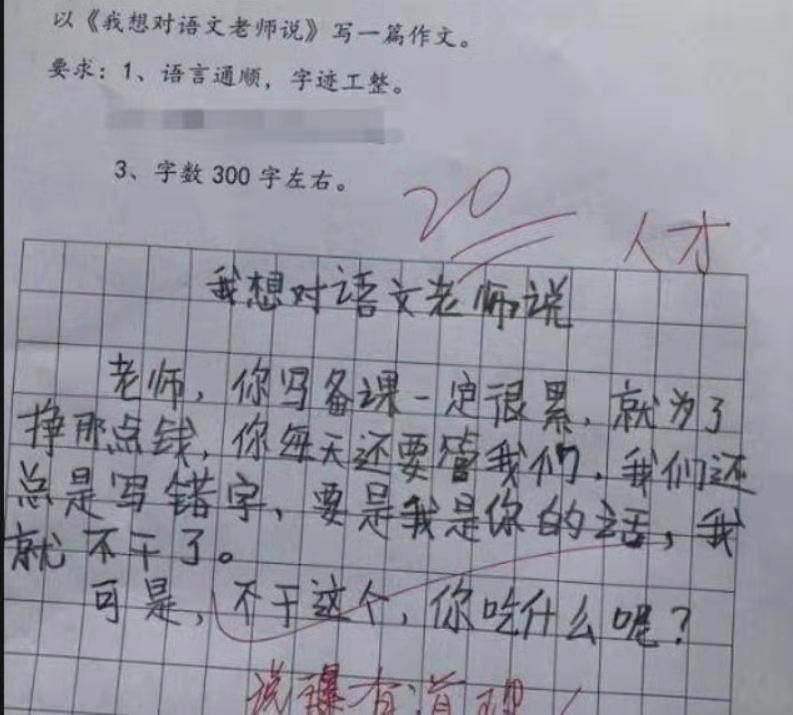 以《我想对语文老师说》写一篇作文。
要求：1、语言通顺，字迹工整。
3、字数 300 字左右。
20
人才
我想对语文老师说
老师，你写备课一定很累，就为了
挣那点钱，你每天还要管我们，我们还
总是写错字，要是我是你的话，我
就不干了。
可是，不干这个，你吃什么呢？
说 有道理